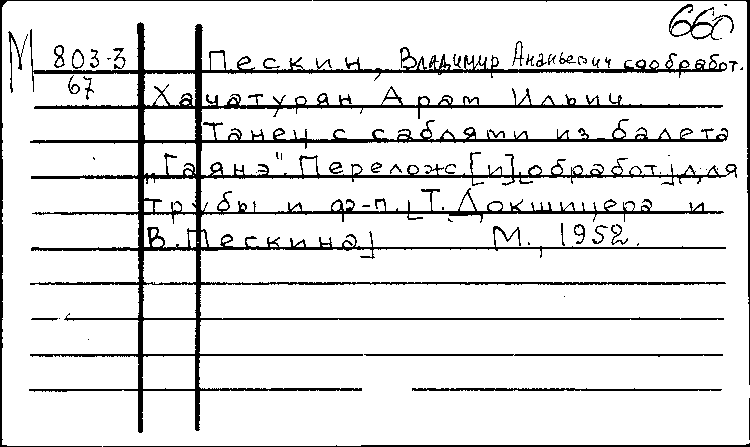 660
М 803-3 Пескин, Владимир Ананьевич сообработ.
67 Хачатурян, Арам Ильич
Танец с саблями из балета
„Гаянэ". Перелож. [и] [обработ.] для
трубы и ф-п. [Т. Докшицера и
В. Пескина] М., 1952.